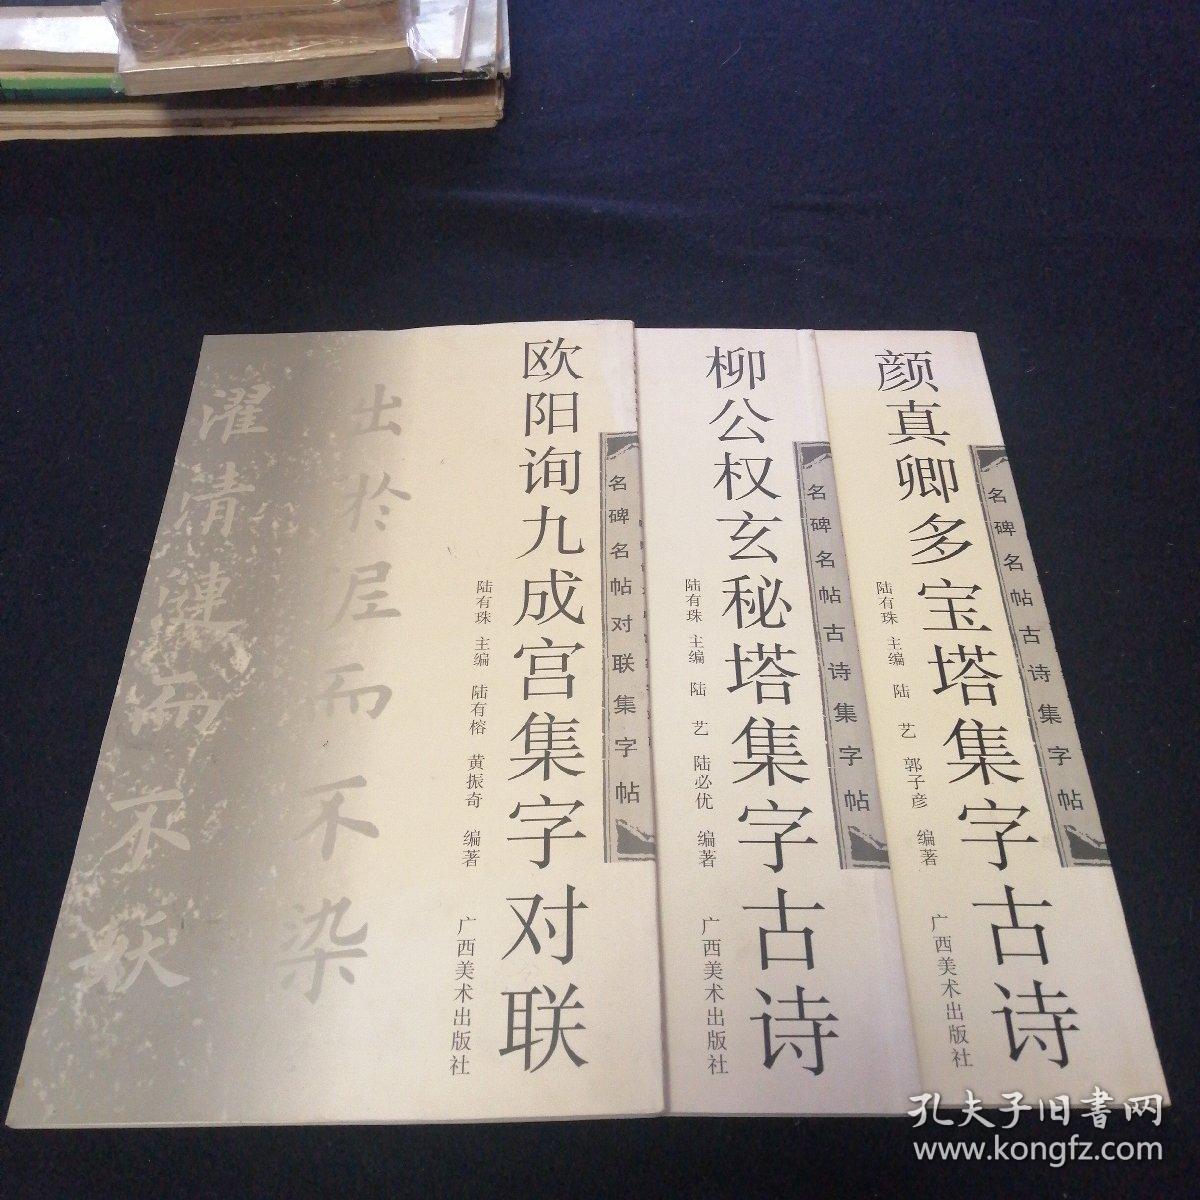 颜真卿多宝塔集字古诗
名碑名帖古诗集字帖
陆有珠 主编 陆 艺 郭子彦 编著
广西美术出版社
柳公权玄秘塔集字古诗
名碑名帖古诗集字帖
陆有珠 主编 陆 艺 陆必优 编著
广西美术出版社
欧阳询九成宫集字对联
名碑名帖对联集字帖
陆有珠 主编 陆有榕 黄振奇 编著
广西美术出版社
出於尼而不染
濯清涟而不妖
孔夫子旧書网
www.kongfz.com